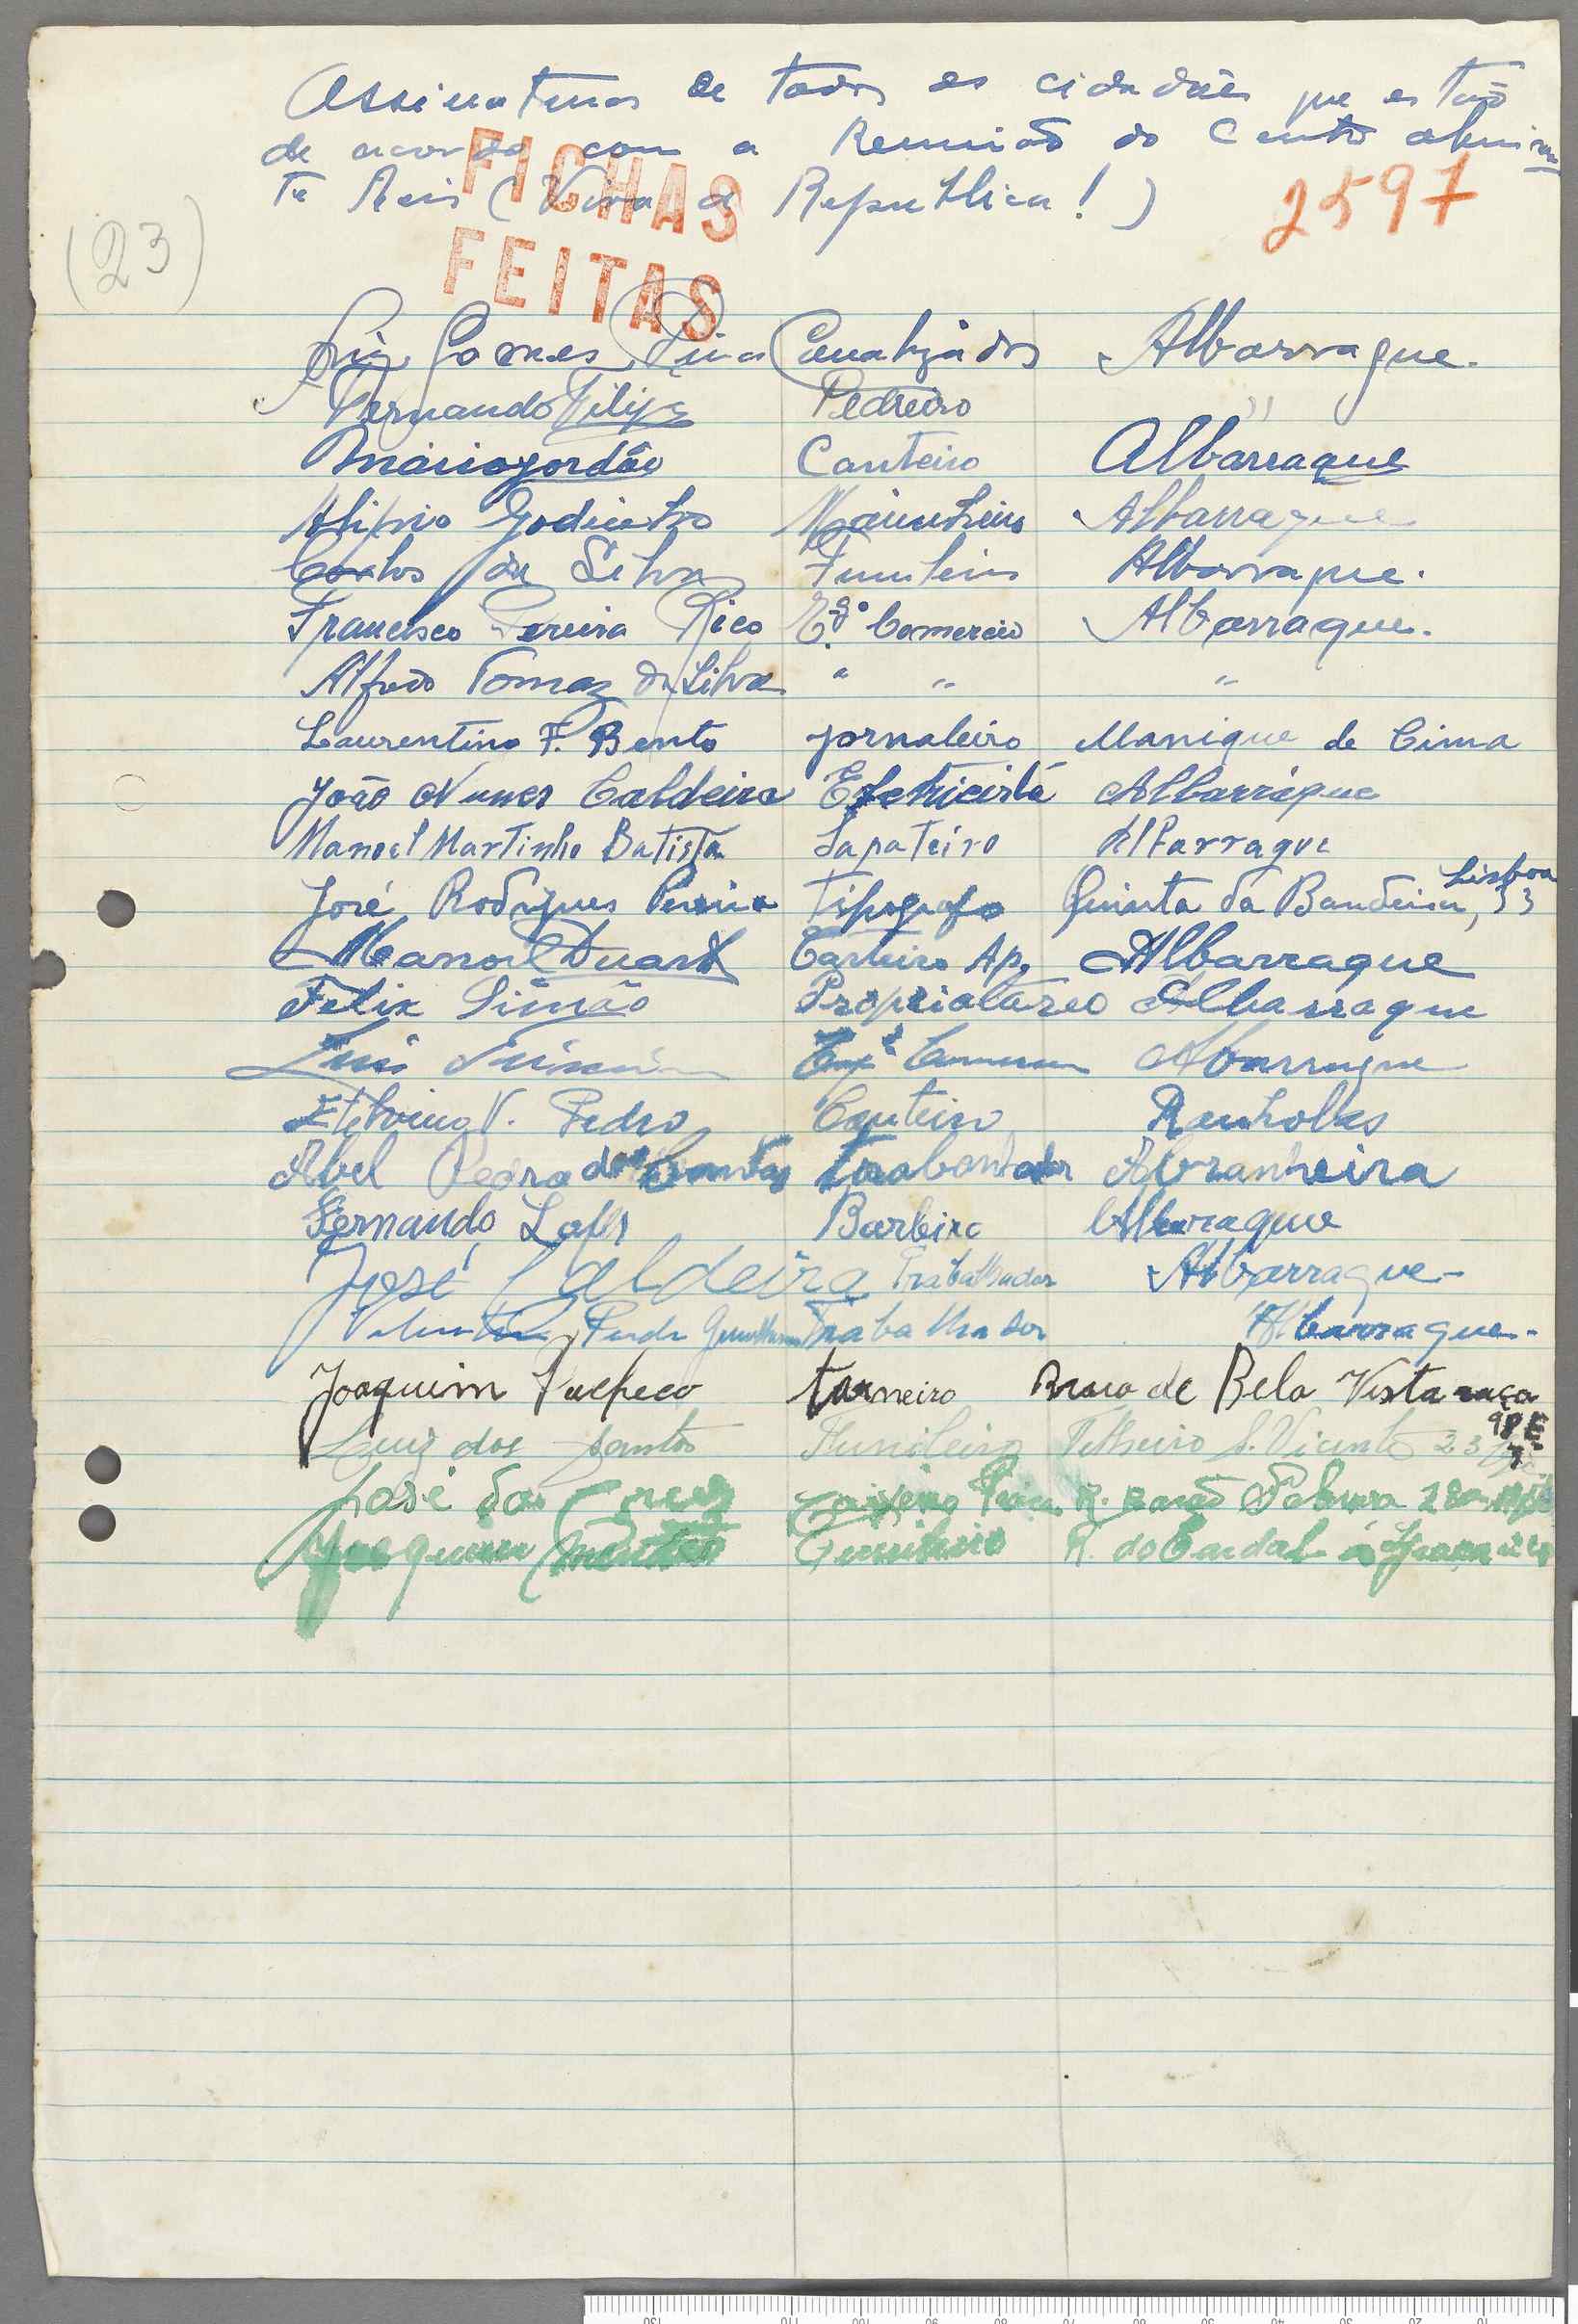 Assinaturas de todos os cidadães que estão
de acordo com a Reunião do Centro almiran
te Reis (Viva a Republica!)
FICHAS
FEITAS
2597
(23)
Luiz Gomes Canalizador Albarraque.
Fernando Filipe Pedreiro "
Mario Jordão Canteiro Albarraque
Alipio Godinho Albarraque
Carlos da Silva Funileiro Albarraque.
Francisco Pereira Rico E.gdo Comercio Albarraque.
Alfredo Tomaz da Silva " " "
Laurentino F. Bento jornaleiro Manique de Cima
João Nunes Caldeira Eletricista Albarraque
Manoel Martinho Batista Sapateiro Albarraque
José Rodrigues Pereira Tipografo Quinta da Bandeira, 33 Lisboa
Manoel Duarte Carteiro Ap. Albarraque
Felix Simão Propriatareo Albarraque
Luis Albarraque
Etelvino V. Pedro Canteiro Ranholas
Abel Pedro dos Santos Abranheira
Fernando Lopes Barbeiro Albarraque
José Caldeira Trabalhador Albarraque-
Trabalhador Albarraque-
Joaquim Pacheco torneiro de Bela Vista Graça
98 E
Luiz dos Santos Funileiro Telheiro S. Vicente 23
José da Cruz
Joaquim Funileiro R. do Cardal á Graça